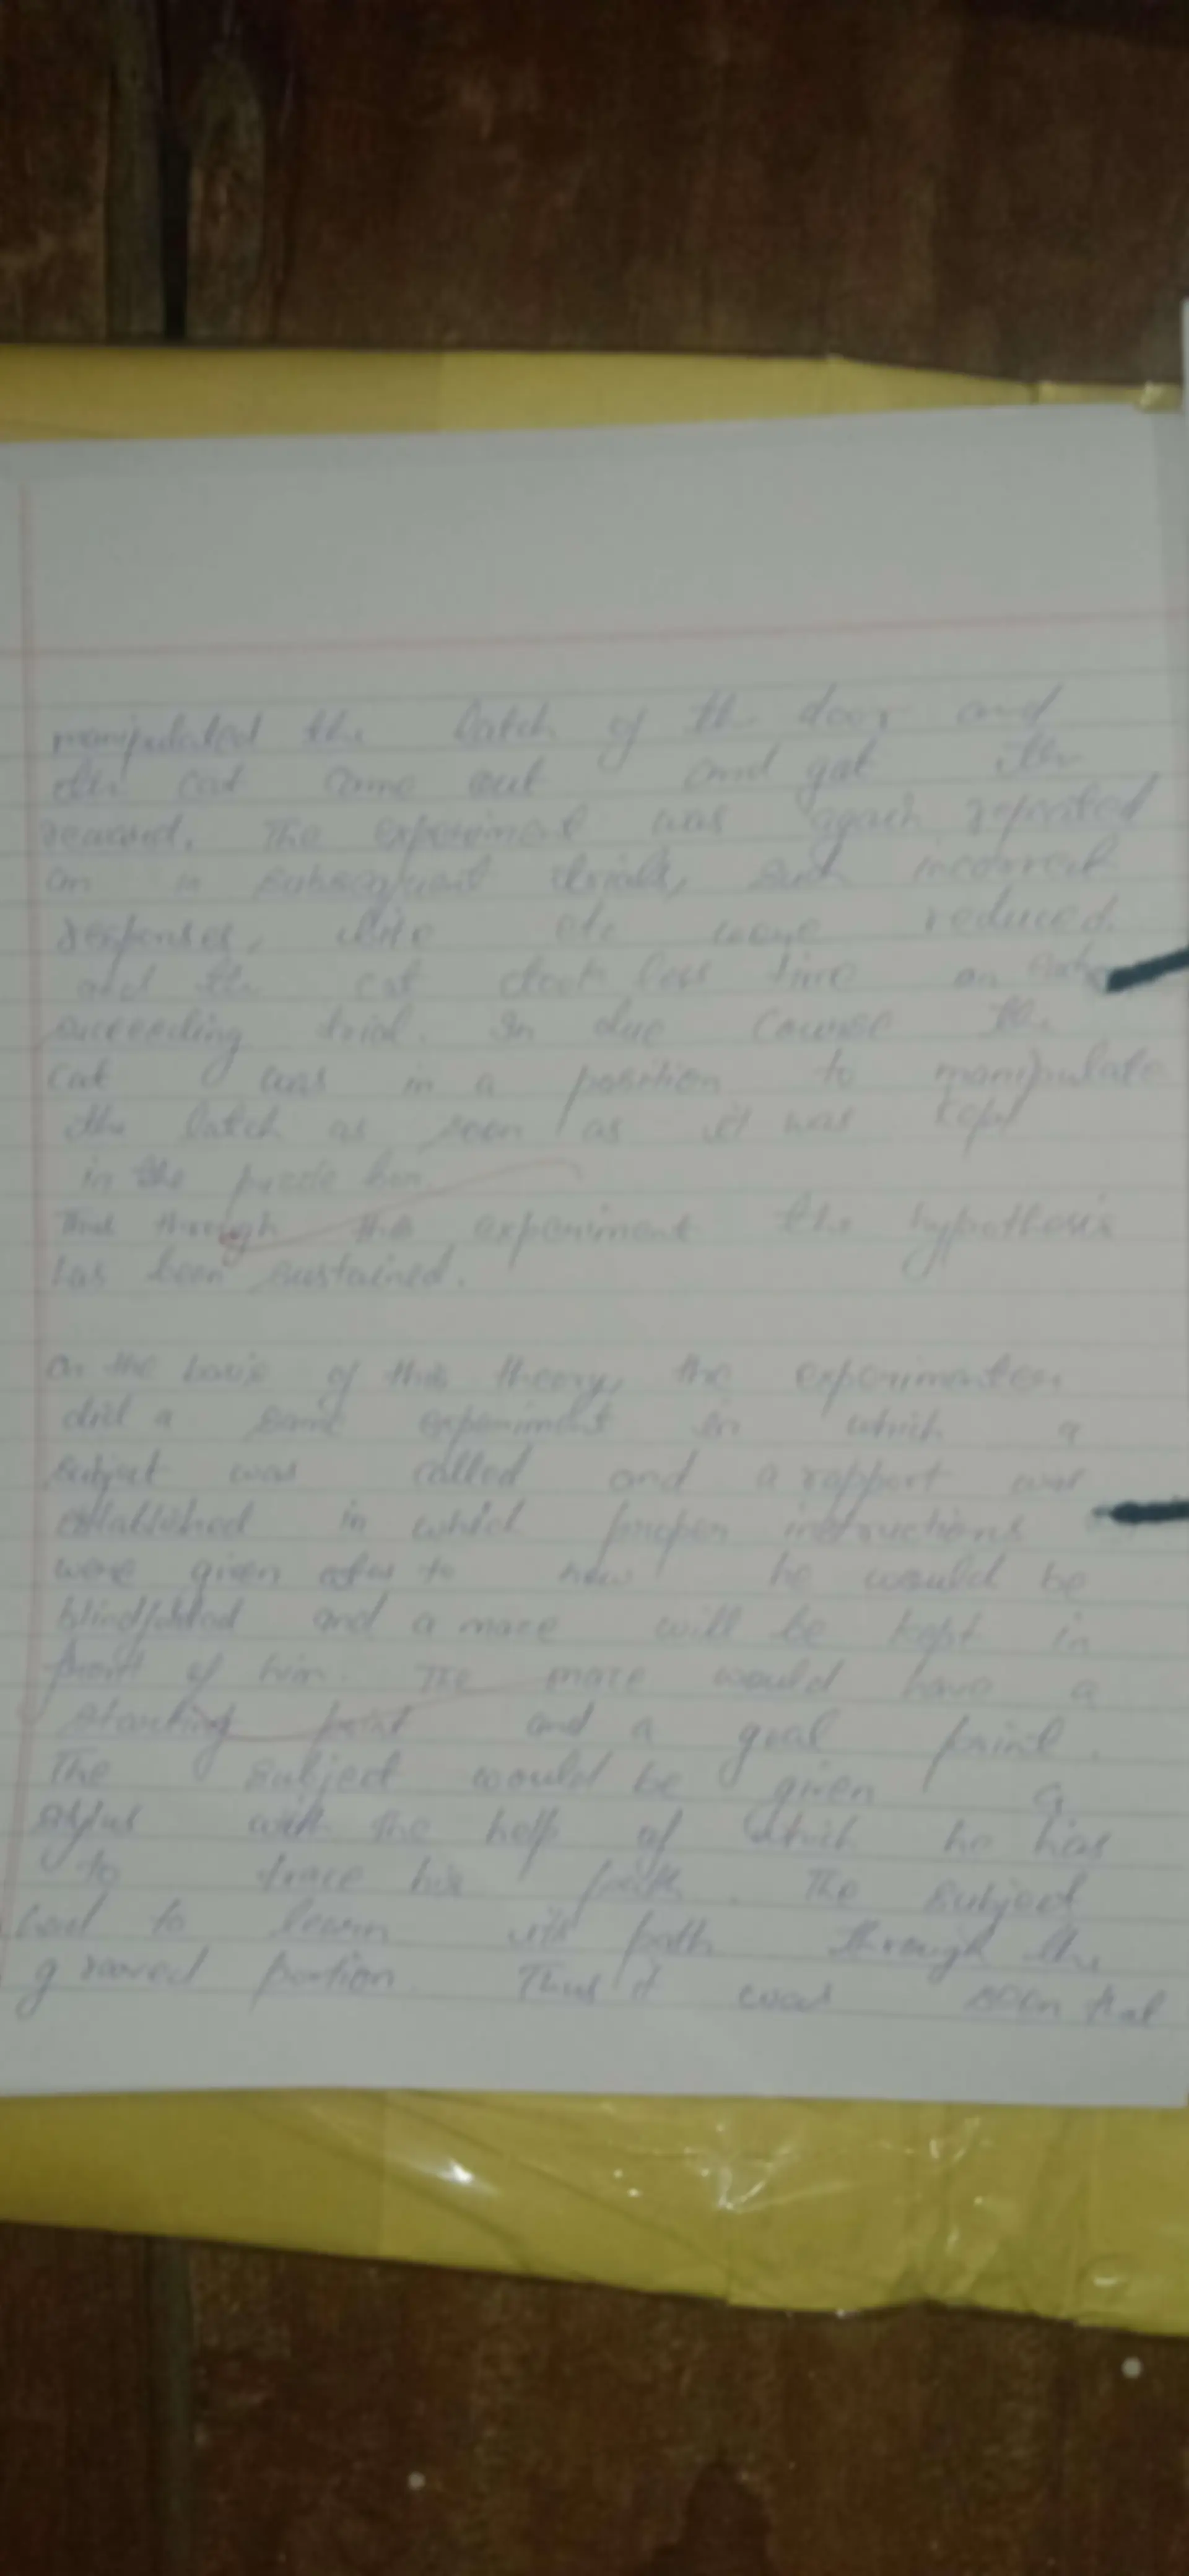 manipulated the latch of the door and
the cat came out and got the
reward. The experiment was again repeated
on in subsequent trials, such incorrect
responses, bite etc were reduced.
and the cat took less time on
succeeding trial. In due course the
cat was in a position to manipulate
the latch as soon as it was kept
in the puzzle box.
Thus through this experiment the hypothesis
has been sustained.
On the basis of this theory, the experimenter
did a same experiment in which a
subject was called and a rapport was
established in which proper instructions
were given to how he would be
blindfolded and a maze will be kept in
front of him. The maze would have a
starting point and a goal point.
The subject would be given a
with the help of which he has
to trace his path. The subject
had to learn its path through the
grooved portion. Thus it was seen that